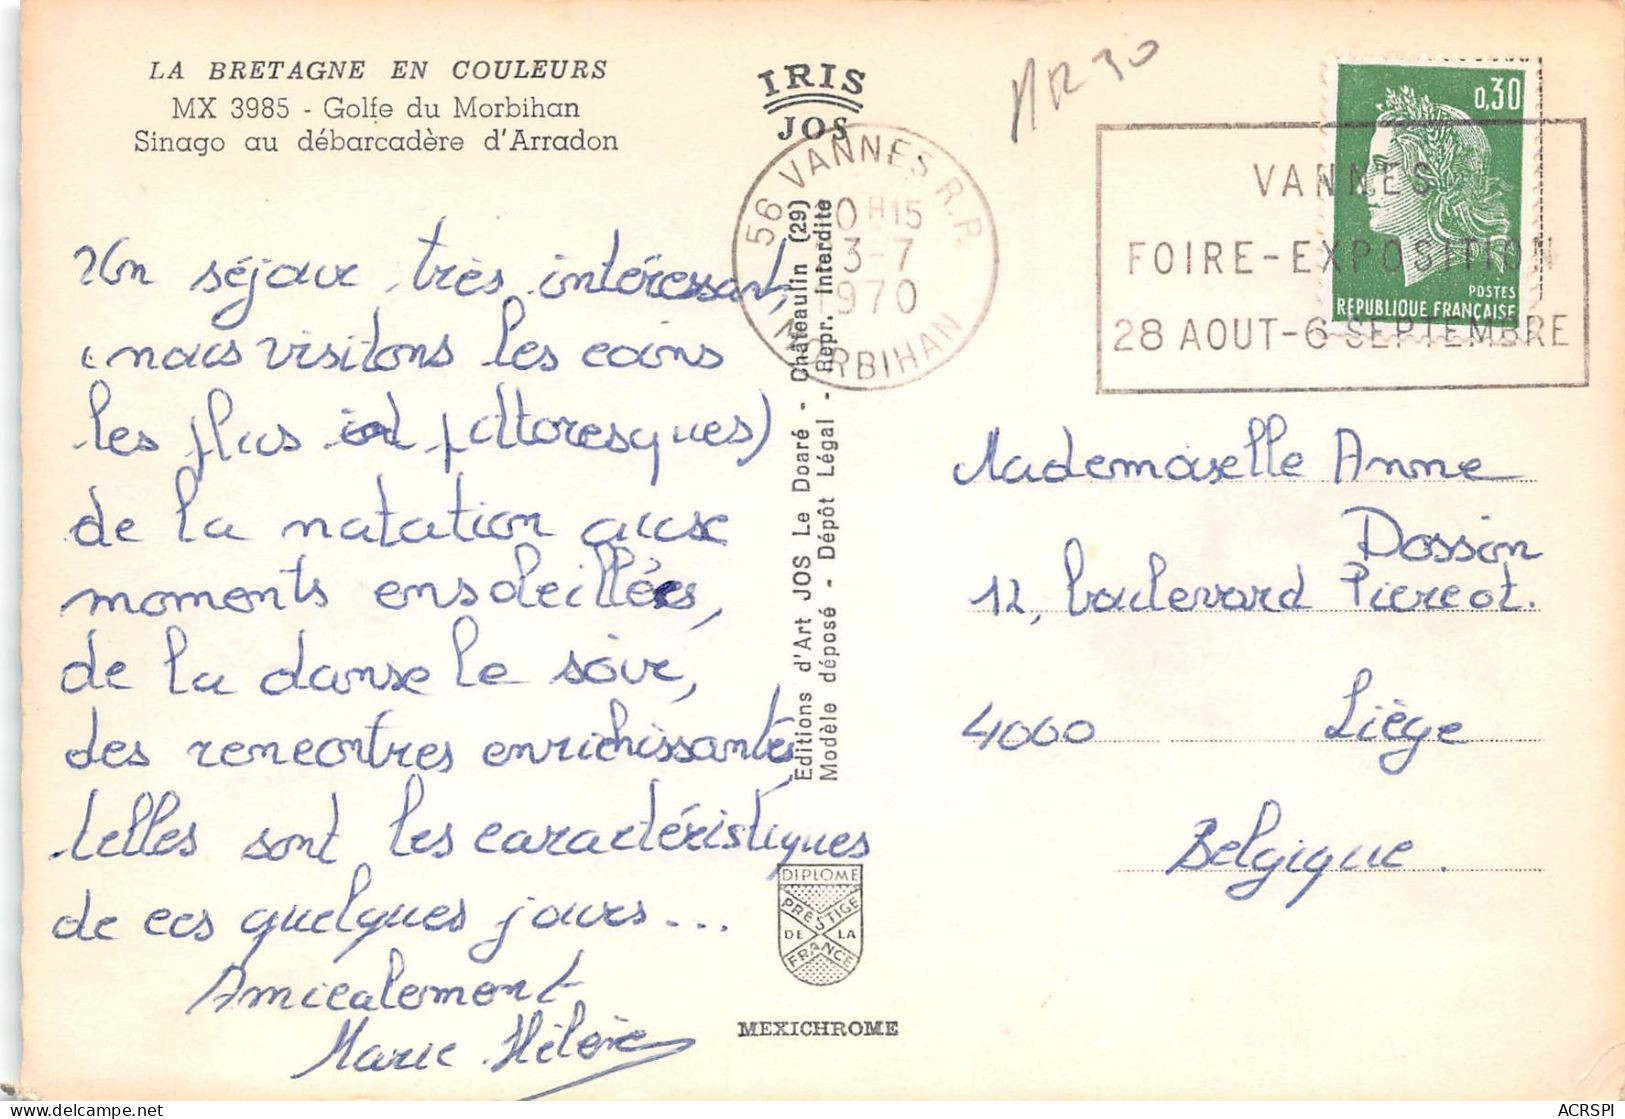 LA BRETAGNE EN COULEURS
MX 3985 - Golfe du Morbihan
Sinago au débarcadère d'Arradon
IRIS
JOS
56 VANNES R.P.
0H15
3-7
1970
MORBIHAN
VANNES
FOIRE-EXPOSITION
28 AOUT-6 SEPTEMBRE
0,30
POSTES
REPUBLIQUE FRANÇAISE
Un séjour très intéressant,
(nous visitons les coins
les plus pittoresques)
de la natation aux
moments ensoleillés,
de la danse le soir,
des rencontres enrichissantes
telles sont les caractéristiques
de ces quelques jours...
Amicalement
Marie Hélène
Editions d'Art JOS Le Doaré - Châteaulin (29)
Modèle déposé - Dépôt Légal - Repr. Interdite
Mademoiselle Anne
Dossin
12, boulevard Piercot.
4000 Liège
Belgique.
DIPLOME
PRESTIGE
DE LA
FRANCE
MEXICHROME
ACRSPI